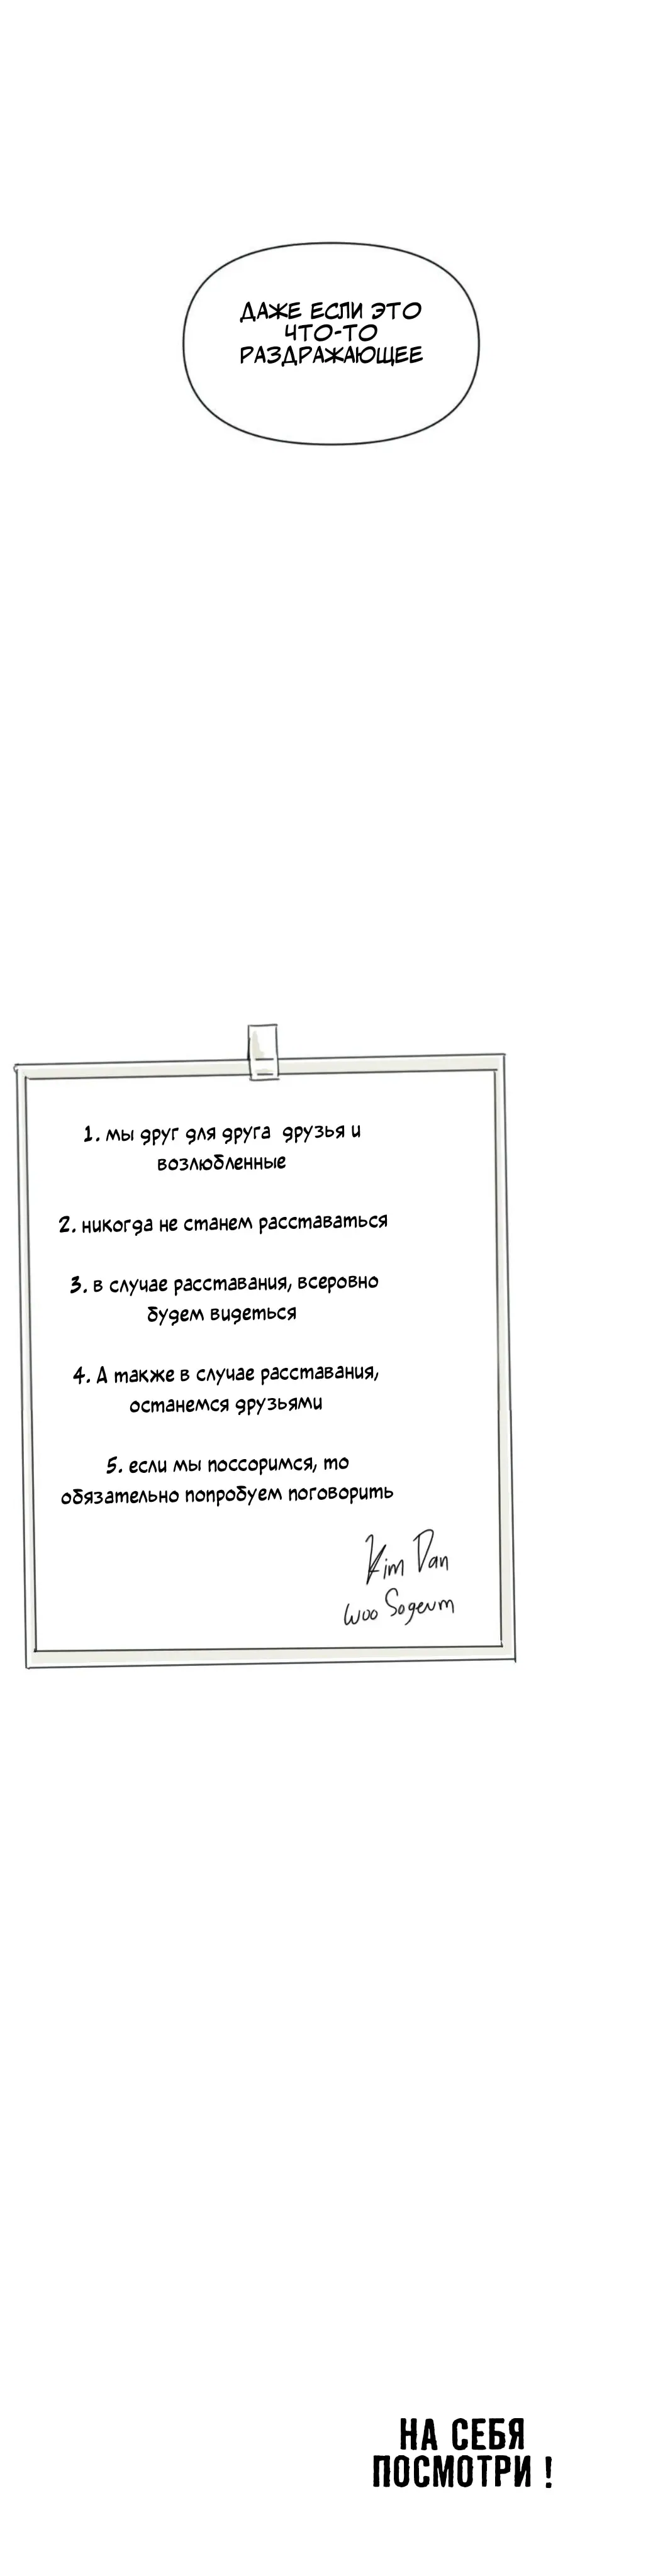 ДАЖЕ ЕСЛИ ЭТО
ЧТО-ТО
РАЗДРАЖАЮЩЕЕ
1. мы друг для друга друзья и
возлюбленные
2. никогда не станем расставаться
3. в случае расставания, всеровно
будем видеться
4. А также в случае расставания,
останемся друзьями
5. если мы поссоримся, то
обязательно попробуем поговорить
Kim Dan
Woo Sogeum
НА СЕБЯ
ПОСМОТРИ !